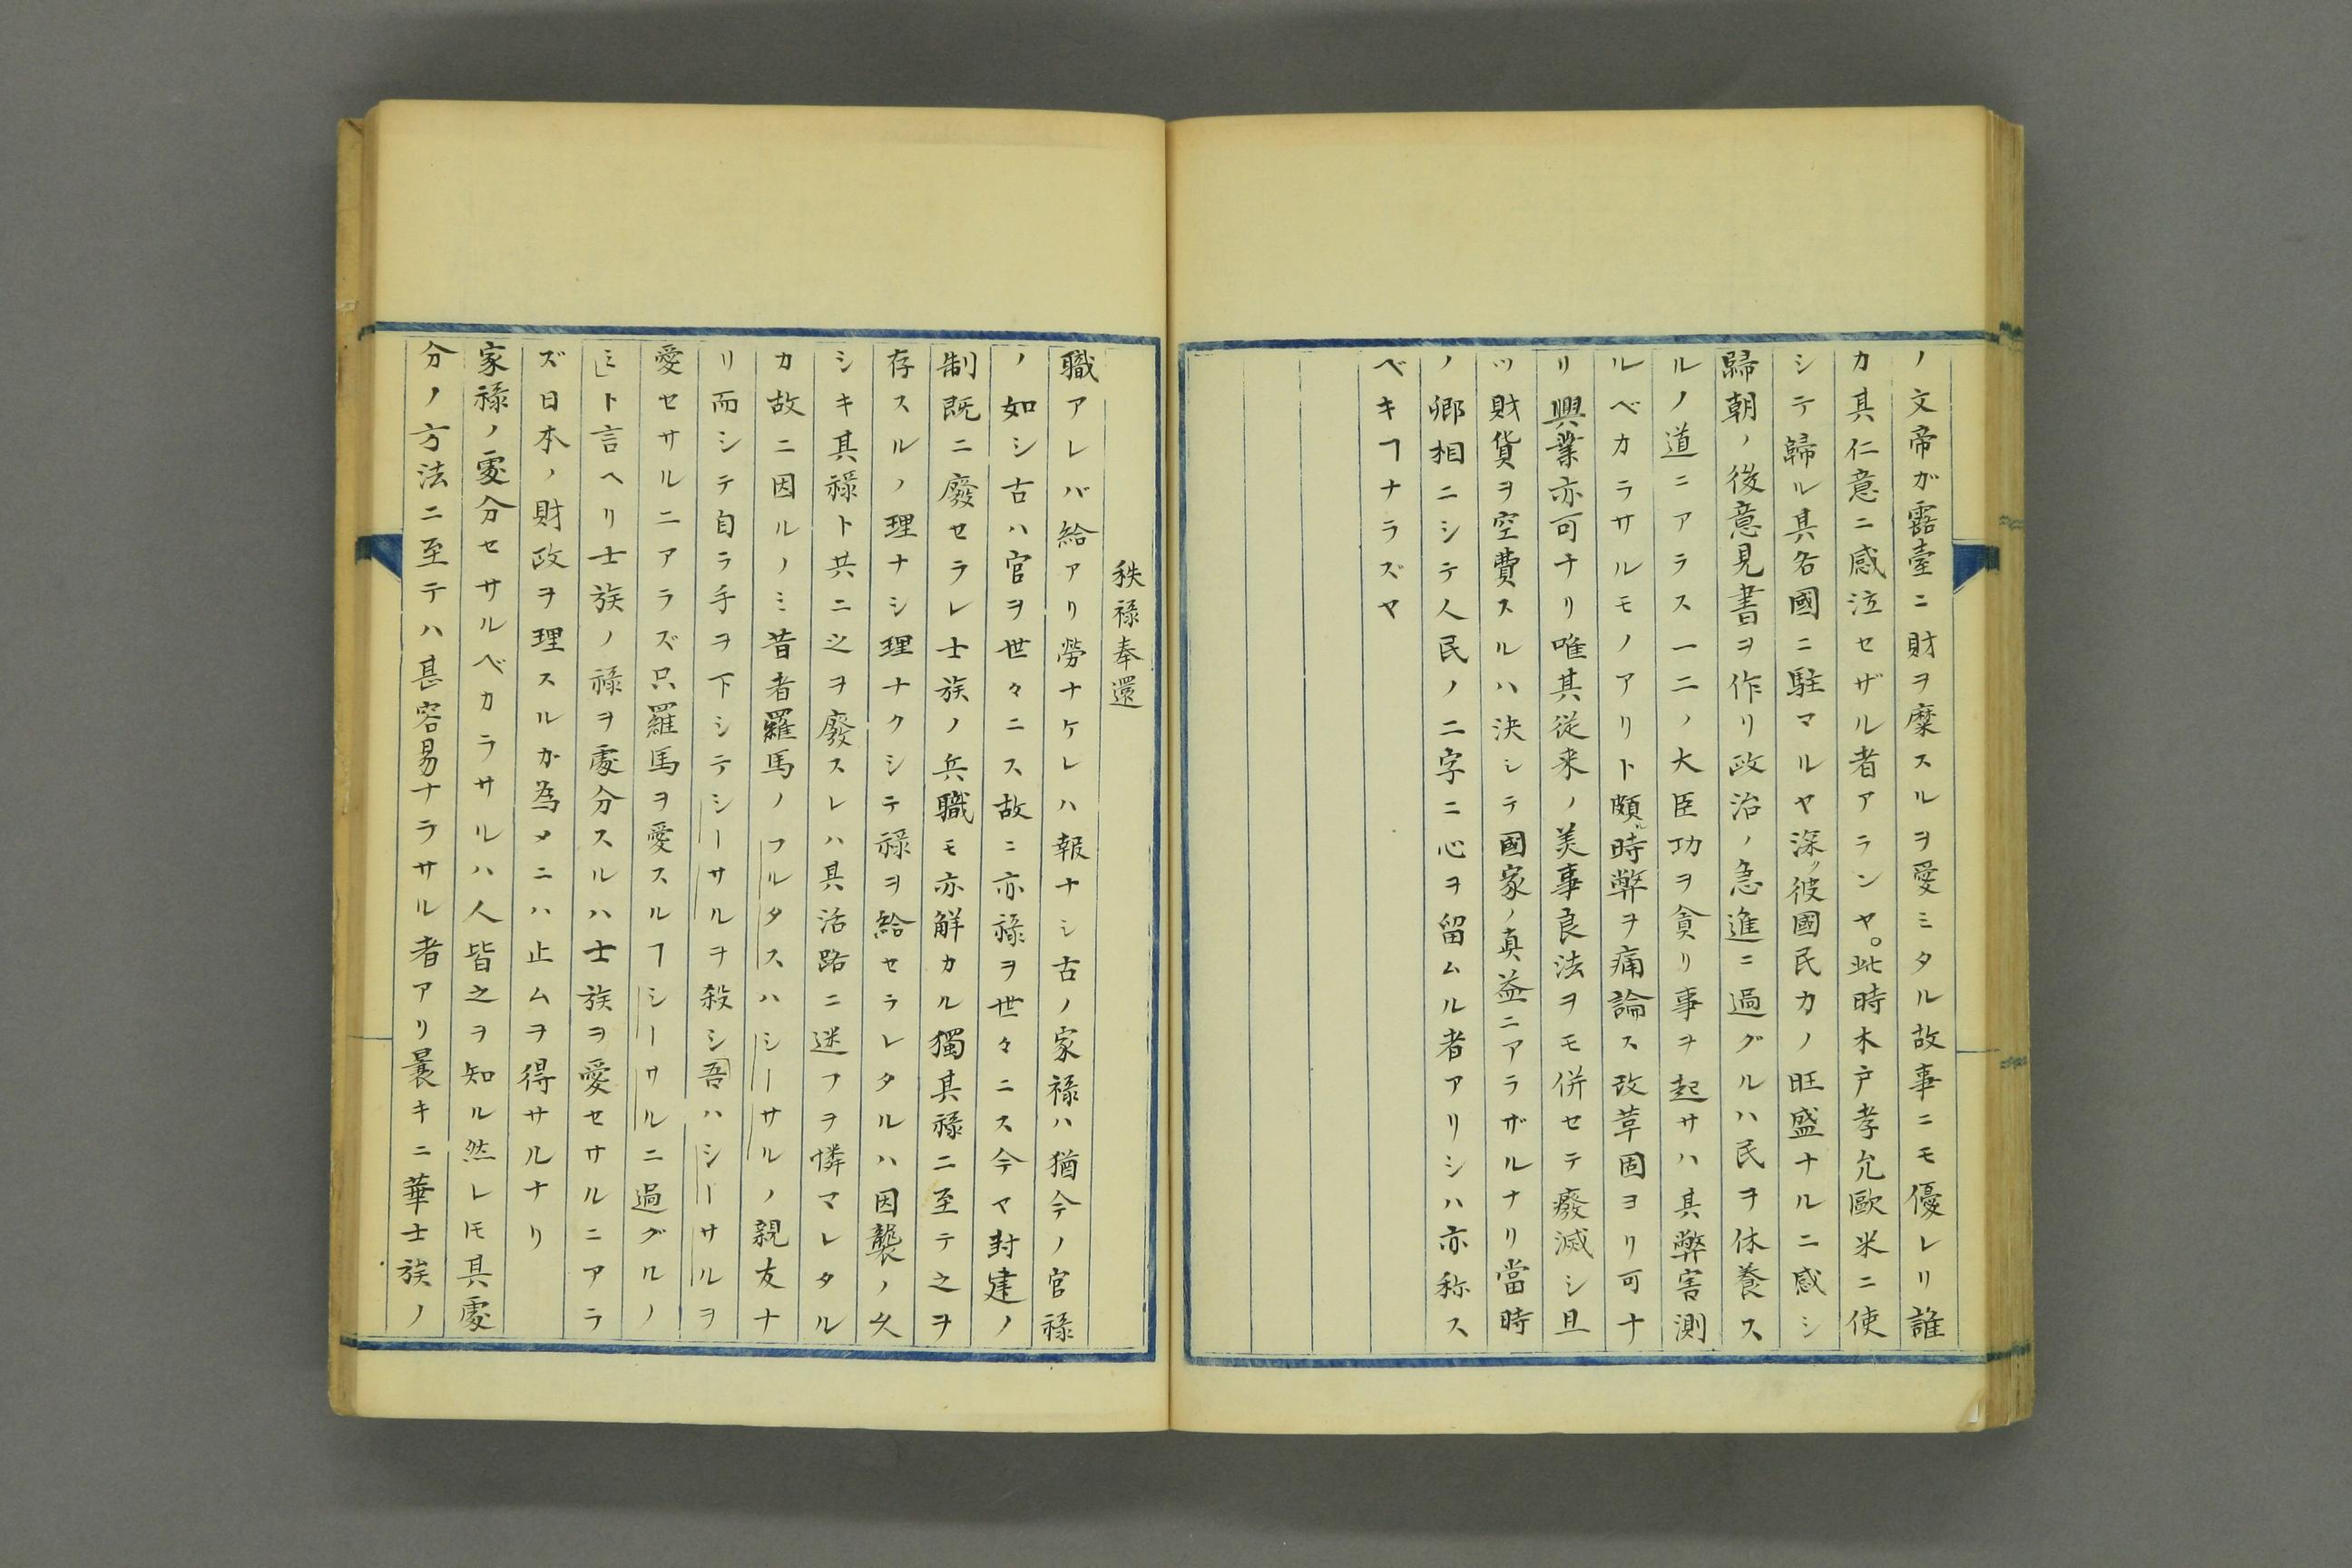 ノ文帝ガ露臺ニ財ヲ糜スルヲ愛ミタル故事ニモ優レリ誰
カ其仁意ニ感泣セザル者アランヤ。此時木戸孝允歐米ニ使
シテ歸ル其各國ニ駐マルヤ深ク彼國民カノ旺盛ナルニ感シ
歸朝ノ後意見書ヲ作リ政治ノ急進ニ過グルハ民ヲ休養ス
ルノ道ニアラス一二ノ大臣功ヲ貪リ事ヲ起サハ其弊害測
ルベカラサルモノアリト頗ル時弊ヲ痛論ス改革固ヨリ可ナ
リ興業亦可ナリ唯其従来ノ美事良法ヲモ併セテ廢滅シ且
ツ財貨ヲ空費スルハ決シテ國家ノ真益ニアラザルナリ當時
ノ卿相ニシテ人民ノ二字ニ心ヲ留ムル者アリシハ亦称ス
ベキヿナラズヤ
秩禄奉還
職アレバ給アリ勞ナケレハ報ナシ古ノ家禄ハ猶今ノ官禄
ノ如シ古ハ官ヲ世々ニス故ニ亦禄ヲ世々ニス今ヤ封建ノ
制既ニ廢セラレ士族ノ兵職モ亦解カル獨其禄ニ至テ之ヲ
存スルノ理ナシ理ナクシテ禄ヲ給セラレタルハ因襲ノ久
シキ其禄ト共ニ之ヲ廢スレハ其活路ニ迷フヲ憐マレタル
カ故ニ因ルノミ昔者羅馬ノフルタスハシーサルノ親友ナ
リ而シテ自ラ手ヲ下シテシーサルヲ殺シ「吾ハシーサルヲ
愛セサルニアラズ只羅馬ヲ愛スルヿシーサルニ過グルノ
ミ」ト言ヘリ士族ノ禄ヲ處分スルハ士族ヲ愛セサルニアラ
ズ日本ノ財政ヲ理スルカ為メニハ止ムヲ得サルナリ
家禄ノ處分セサルベカラサルハ人皆之ヲ知ル然レ𪜈其處
分ノ方法ニ至テハ甚容易ナラサル者アリ曩キニ華士族ノ